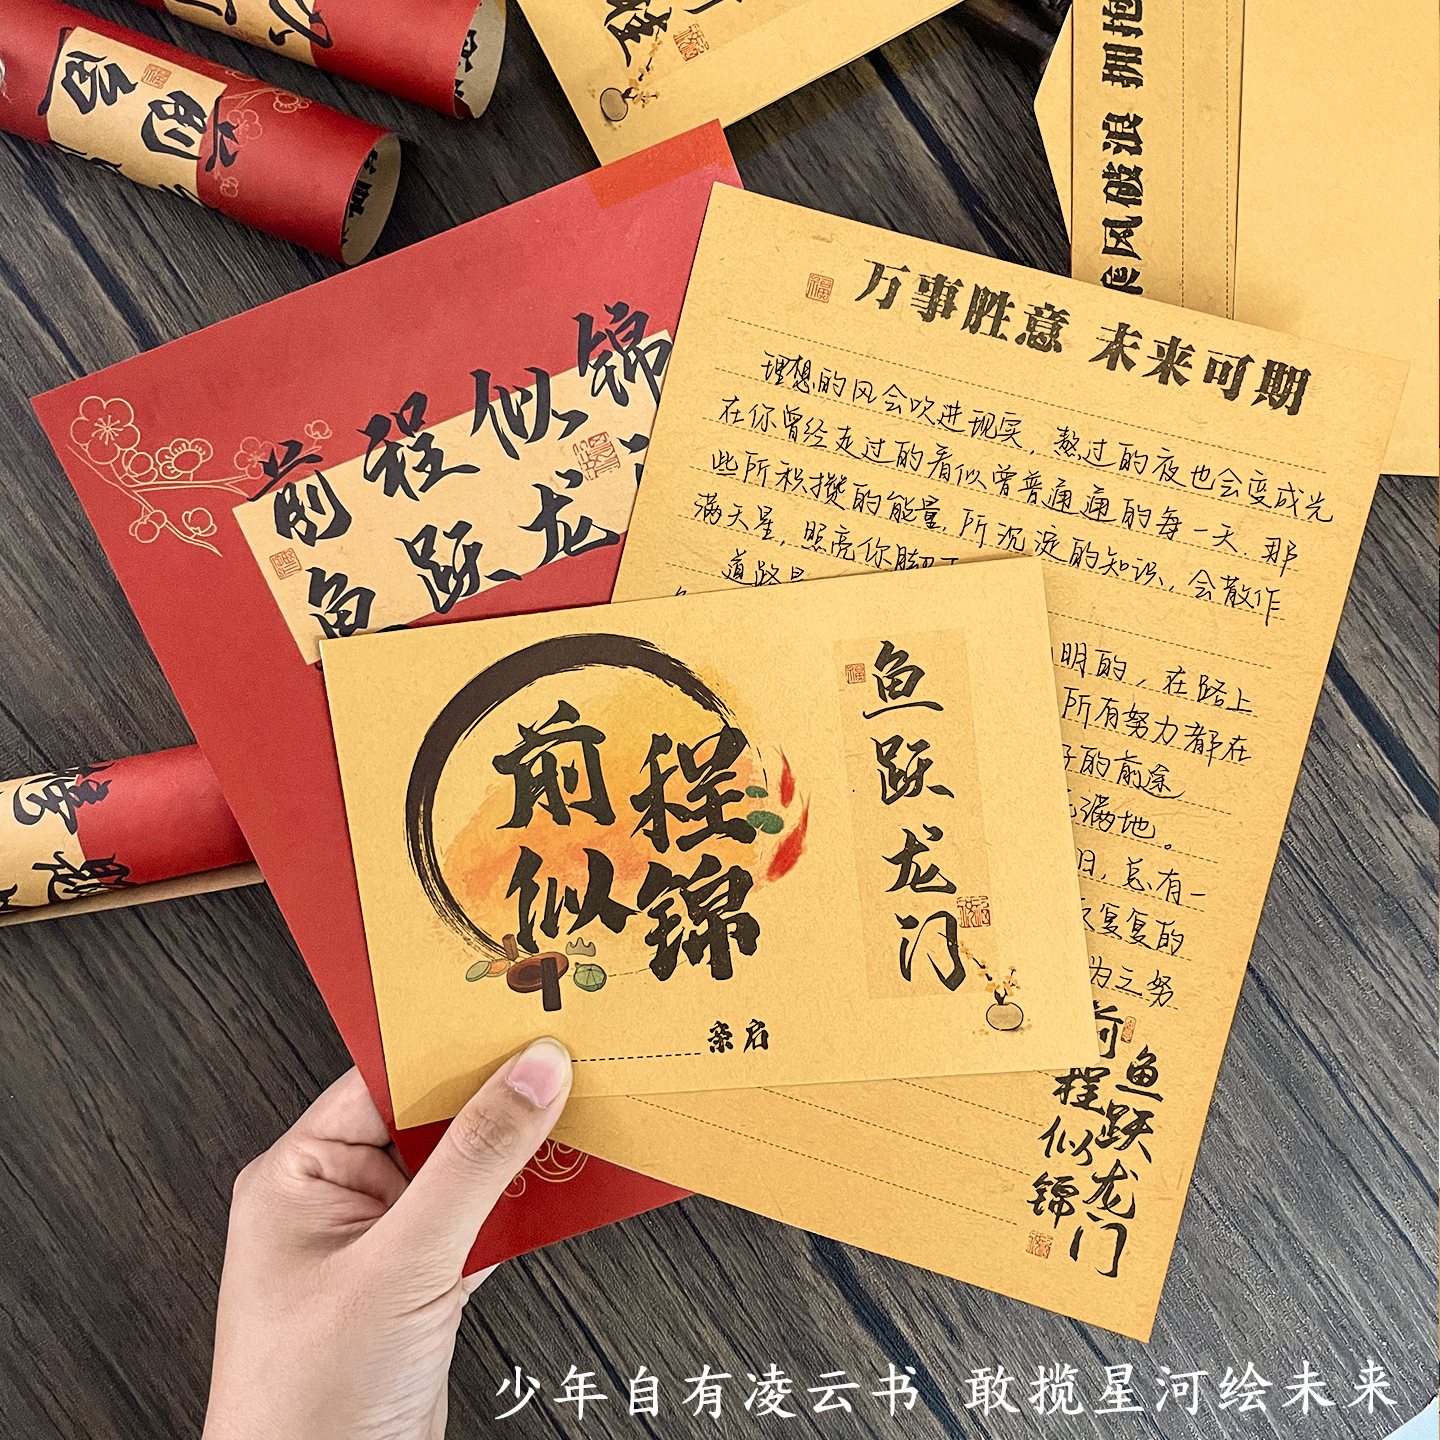 乘风破浪 拥抱
前程似锦
鱼跃龙
万事胜意 未来可期
理想的风会吹进现实，熬过的夜也会变成光
在你曾经走过的看似曾普通通的每一天，那
些所积攒的能量，所沉淀的知识，会散作
满天星，照亮你脚下
道路是
明的，在路上
所有努力都在
的前途
满地。
日，总有一
反复复的
为之努
前程似锦
鱼跃龙门
前程
似锦
鱼跃龙门
亲启
少年自有凌云书 敢揽星河绘未来